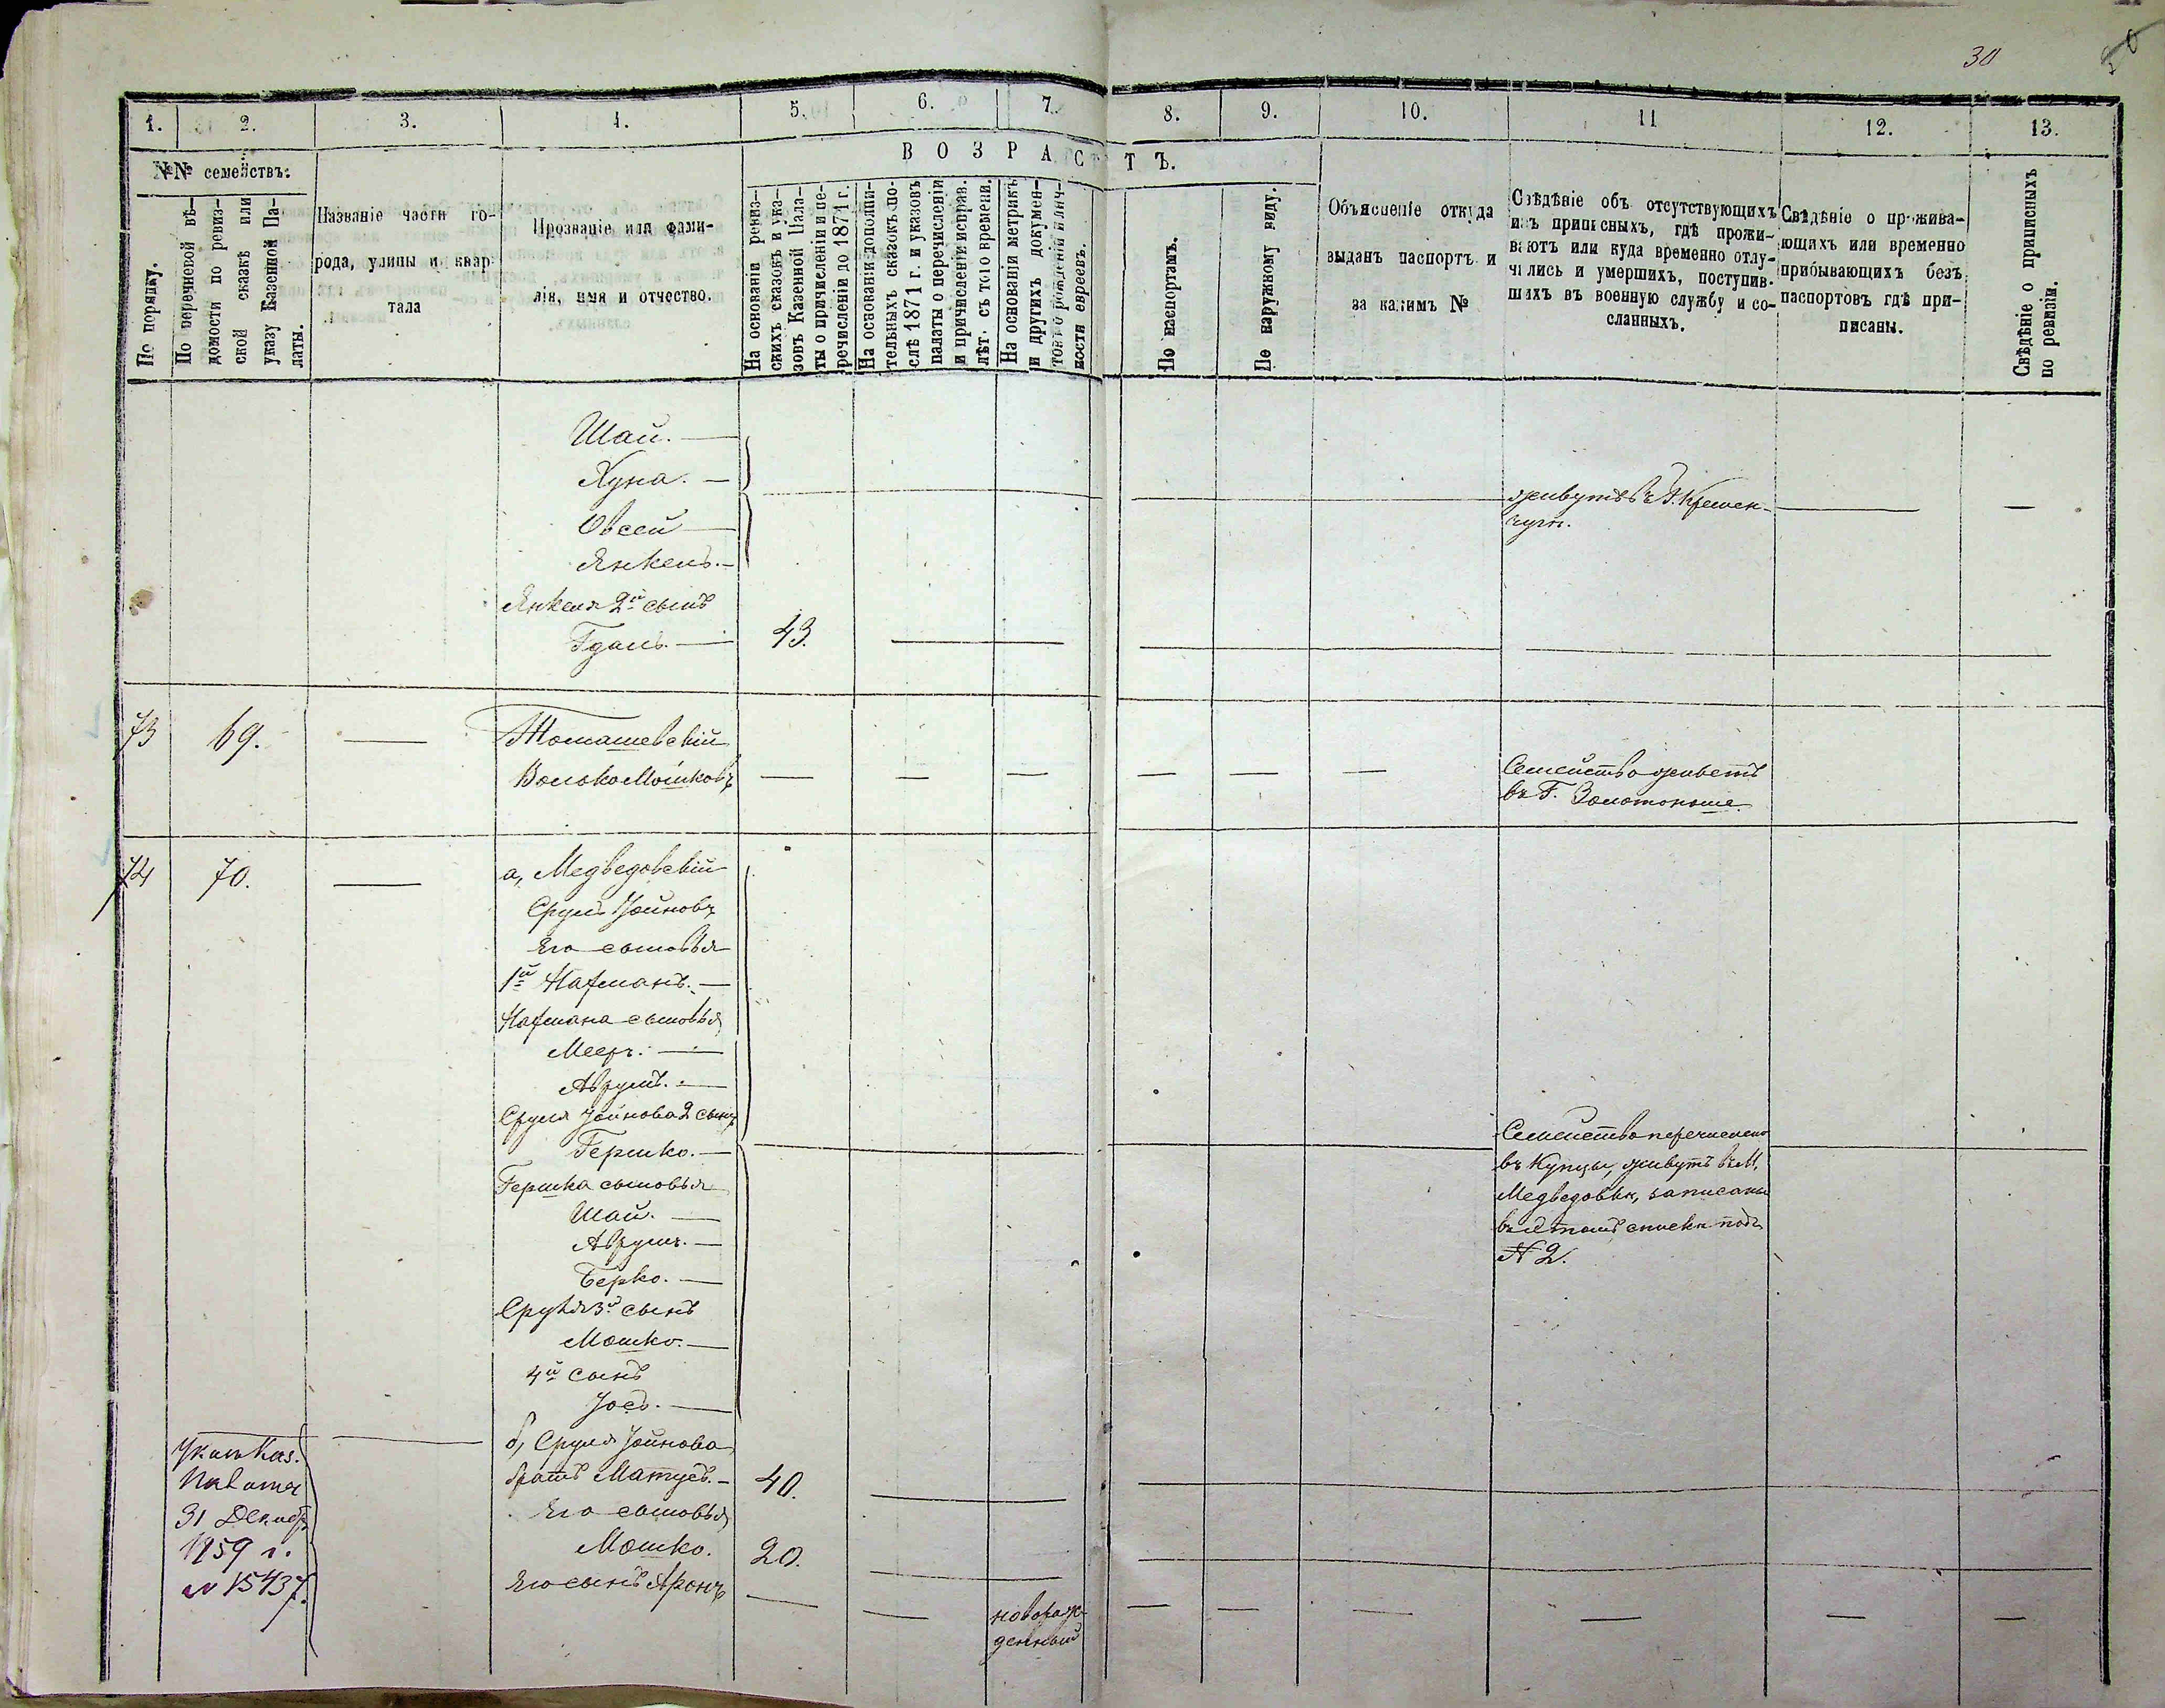 30
1. 2. 3. 4. 5. 6. 7. 8. 9. 10. 11 12. 13.
№№ семействъ:
По порядку.
По перечневой вѣ-
домости по ревиз-
ской сказкѣ или
указу Казенной Па-
латы.
Названіе части го-
рода, улицы и квар-
тала
Прозваніе или фами-
лія, имя и отчество.
ВОЗРАСТЪ.
На основаніи ревиз-
скихъ сказокъ и ука-
зовъ Казенной Пала-
ты о причисленіи и пе-
речисленіи до 1871 г.
На основаніи дополни-
тельныхъ сказокъ по-
слѣ 1871 г. и указовъ
палаты о перечисленіи
и причисленіи исправ.
лѣт. съ того времени.
На основаніи метрикъ
и другихъ докумен-
товъ о рожденіи и лич-
ности евреевъ.
По паспортамъ.
По наружному виду.
Объясненіе откуда
выданъ паспортъ и
за какимъ №
Свѣдѣніе объ отсутствующихъ
изъ приписныхъ, гдѣ прожи-
ваютъ или куда временно отлу-
чились и умершихъ, поступив-
шихъ въ военную службу и со-
сланныхъ.
Свѣдѣніе о прожива-
ющихъ или временно
прибывающихъ безъ
паспортовъ гдѣ при-
писаны.
Свѣдѣніе о приписныхъ
по ревизіи.
Шай. —
Хуна. —
Овсей —
Янкель. —
живутъ въ г. Кремен-
чугѣ.
Янкеля 2й сынъ
Гдаль. — 43.
73 69. — Томашевскій
Волько Мошковъ
Семейство живетъ
въ Г. Золотоноше.
74 70. — а, Медведовскій
Сруль Іойновъ
Его сыновья
1й Нахманъ. —
Нахмана сыновья
Мееръ. —
Аврумъ. —
Сруля Іойнова 2 сынъ
Гершко. —
Гершка сыновья
Шай. —
Аврумъ. —
Берко. —
Сруля 3й сынъ
Мошко. —
4й сынъ
Іосъ. —
Семейство перечислено
въ Купцы, живутъ въ М.
Медведовкѣ, записаны
въ этомъ спискѣ подъ
№ 2.
Указъ Каз.
Палаты
31 Декабр
1859 г.
№ 15437.
б, Сруля Іойнова
братъ Матусъ. — 40.
Его сыновья
Мошко. 20.
Его сынъ Аронъ
новорож-
денный